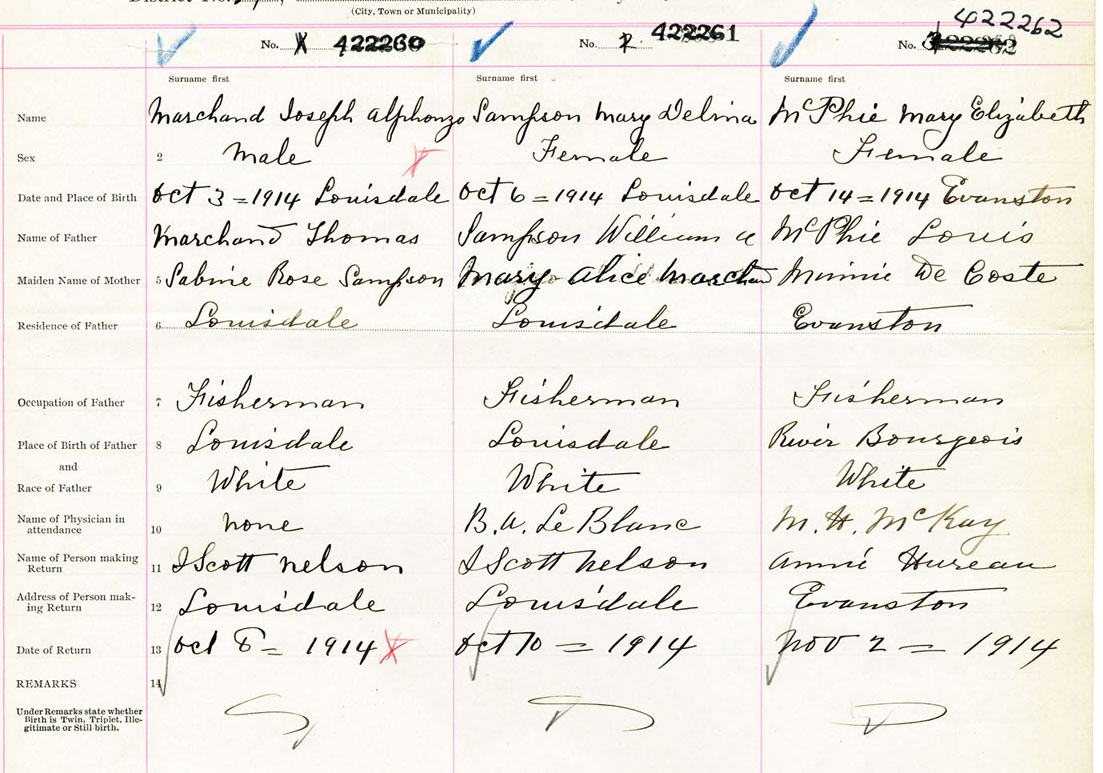 District No.
(City, Town or Municipality)
No. 422260 No. 2 422261 No. 3 422262 422262
Surname first Surname first Surname first
Name Marchand Joseph Alphonzo Sampson Mary Delina McPhie Mary Elizabeth
Sex 2 Male Female Female
Date and Place of Birth Oct 3 = 1914 Louisdale Oct 6 = 1914 Louisdale Oct 14 = 1914 Evanston
Name of Father Marchand Thomas Sampson William A McPhie Louis
Maiden Name of Mother 5 Sabine Rose Sampson Mary Alice Marchand Minnie De Coste
Residence of Father 6 Louisdale Louisdale Evanston
Occupation of Father 7 Fisherman Fisherman Fisherman
Place of Birth of Father 8 Louisdale Louisdale River Bourgeois
and
Race of Father 9 White White White
Name of Physician in
attendance 10 None B. A. Le Blanc M. H. McKay
Name of Person making
Return 11 I Scott Nelson I Scott Nelson Annie Hureau
Address of Person mak-
ing Return 12 Louisdale Louisdale Evanston
Date of Return 13 Oct 8 = 1914 Oct 10 = 1914 Nov 2 = 1914
REMARKS 14
Under Remarks state whether
Birth is Twin, Triplet, Ille-
gitimate or Still-birth.